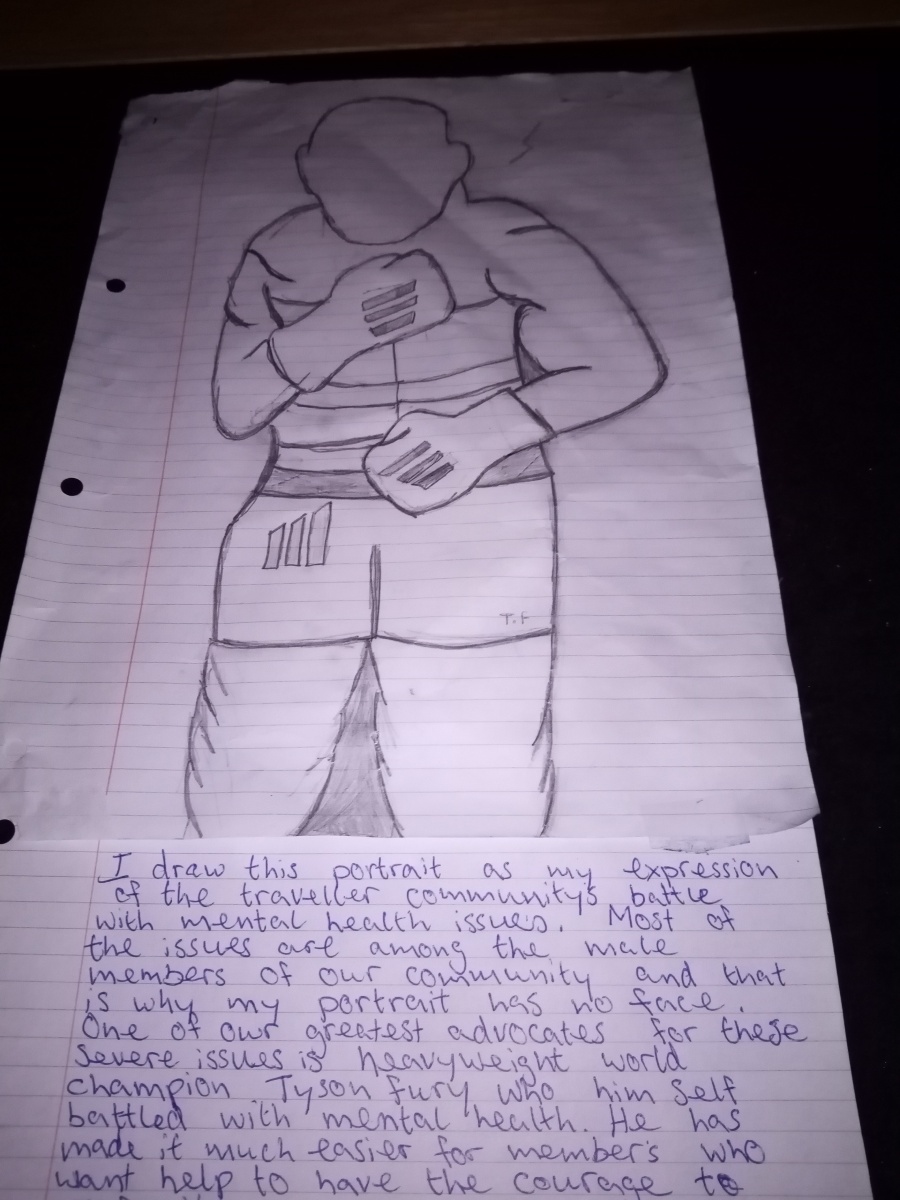 T.F
I draw this portrait as my expression
of the traveller community's battle
with mental health issues. Most of
the issues are among the male
members of our community and that
is why my portrait has no face.
One of our greatest advocates for these
severe issues is heavyweight world
champion Tyson fury who him self
battled with mental health. He has
made it much easier for member's who
want help to have the courage to